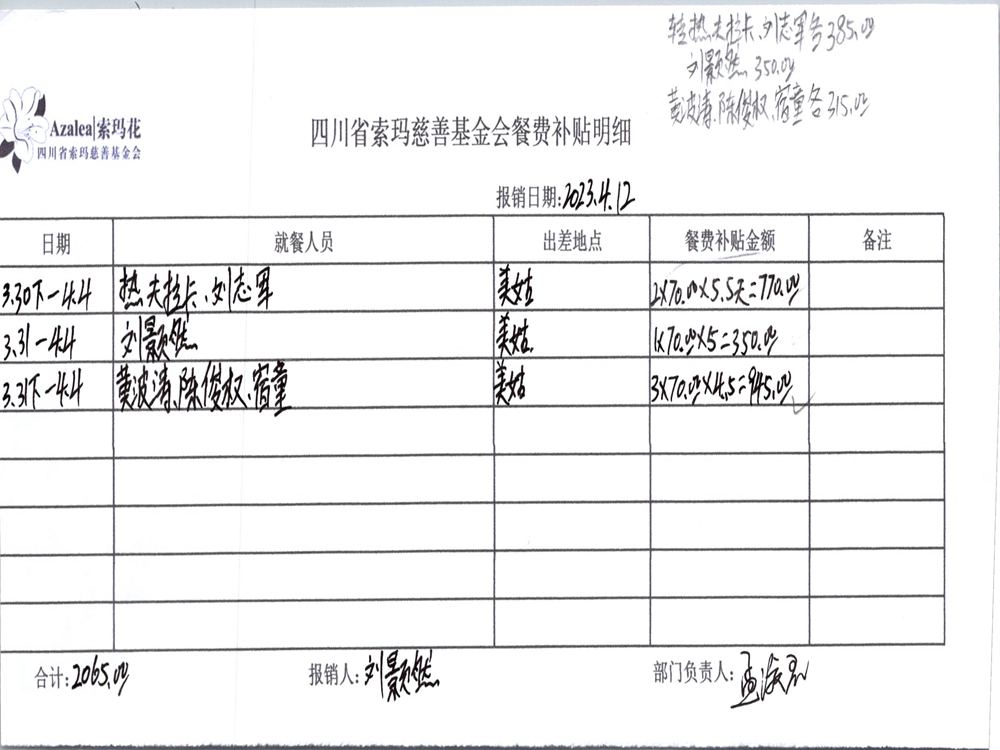 转热夫拉卡、刘志军各385.00
刘颢然 350.00
黄波清、陈俊权、宿童各315.00
Azalea|索玛花
四川省索玛慈善基金会
四川省索玛慈善基金会餐费补贴明细
报销日期:2023.4.12
日期 就餐人员 出差地点 餐费补贴金额 备注
3.30下-4.4 热夫拉卡、刘志军 美姑 2×70.00×5.5天=770.00
3.31-4.4 刘颢然 美姑 1×70.00×5=350.00
3.31下-4.4 黄波清、陈俊权、宿童 美姑 3×70.00×4.5=945.00
合计:2065.00 报销人:刘颢然 部门负责人: